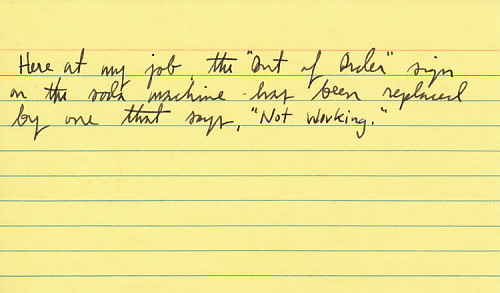 Here at my job, the "Out of Order" sign
on the soda machine has been replaced
by one that says, "Not Working."